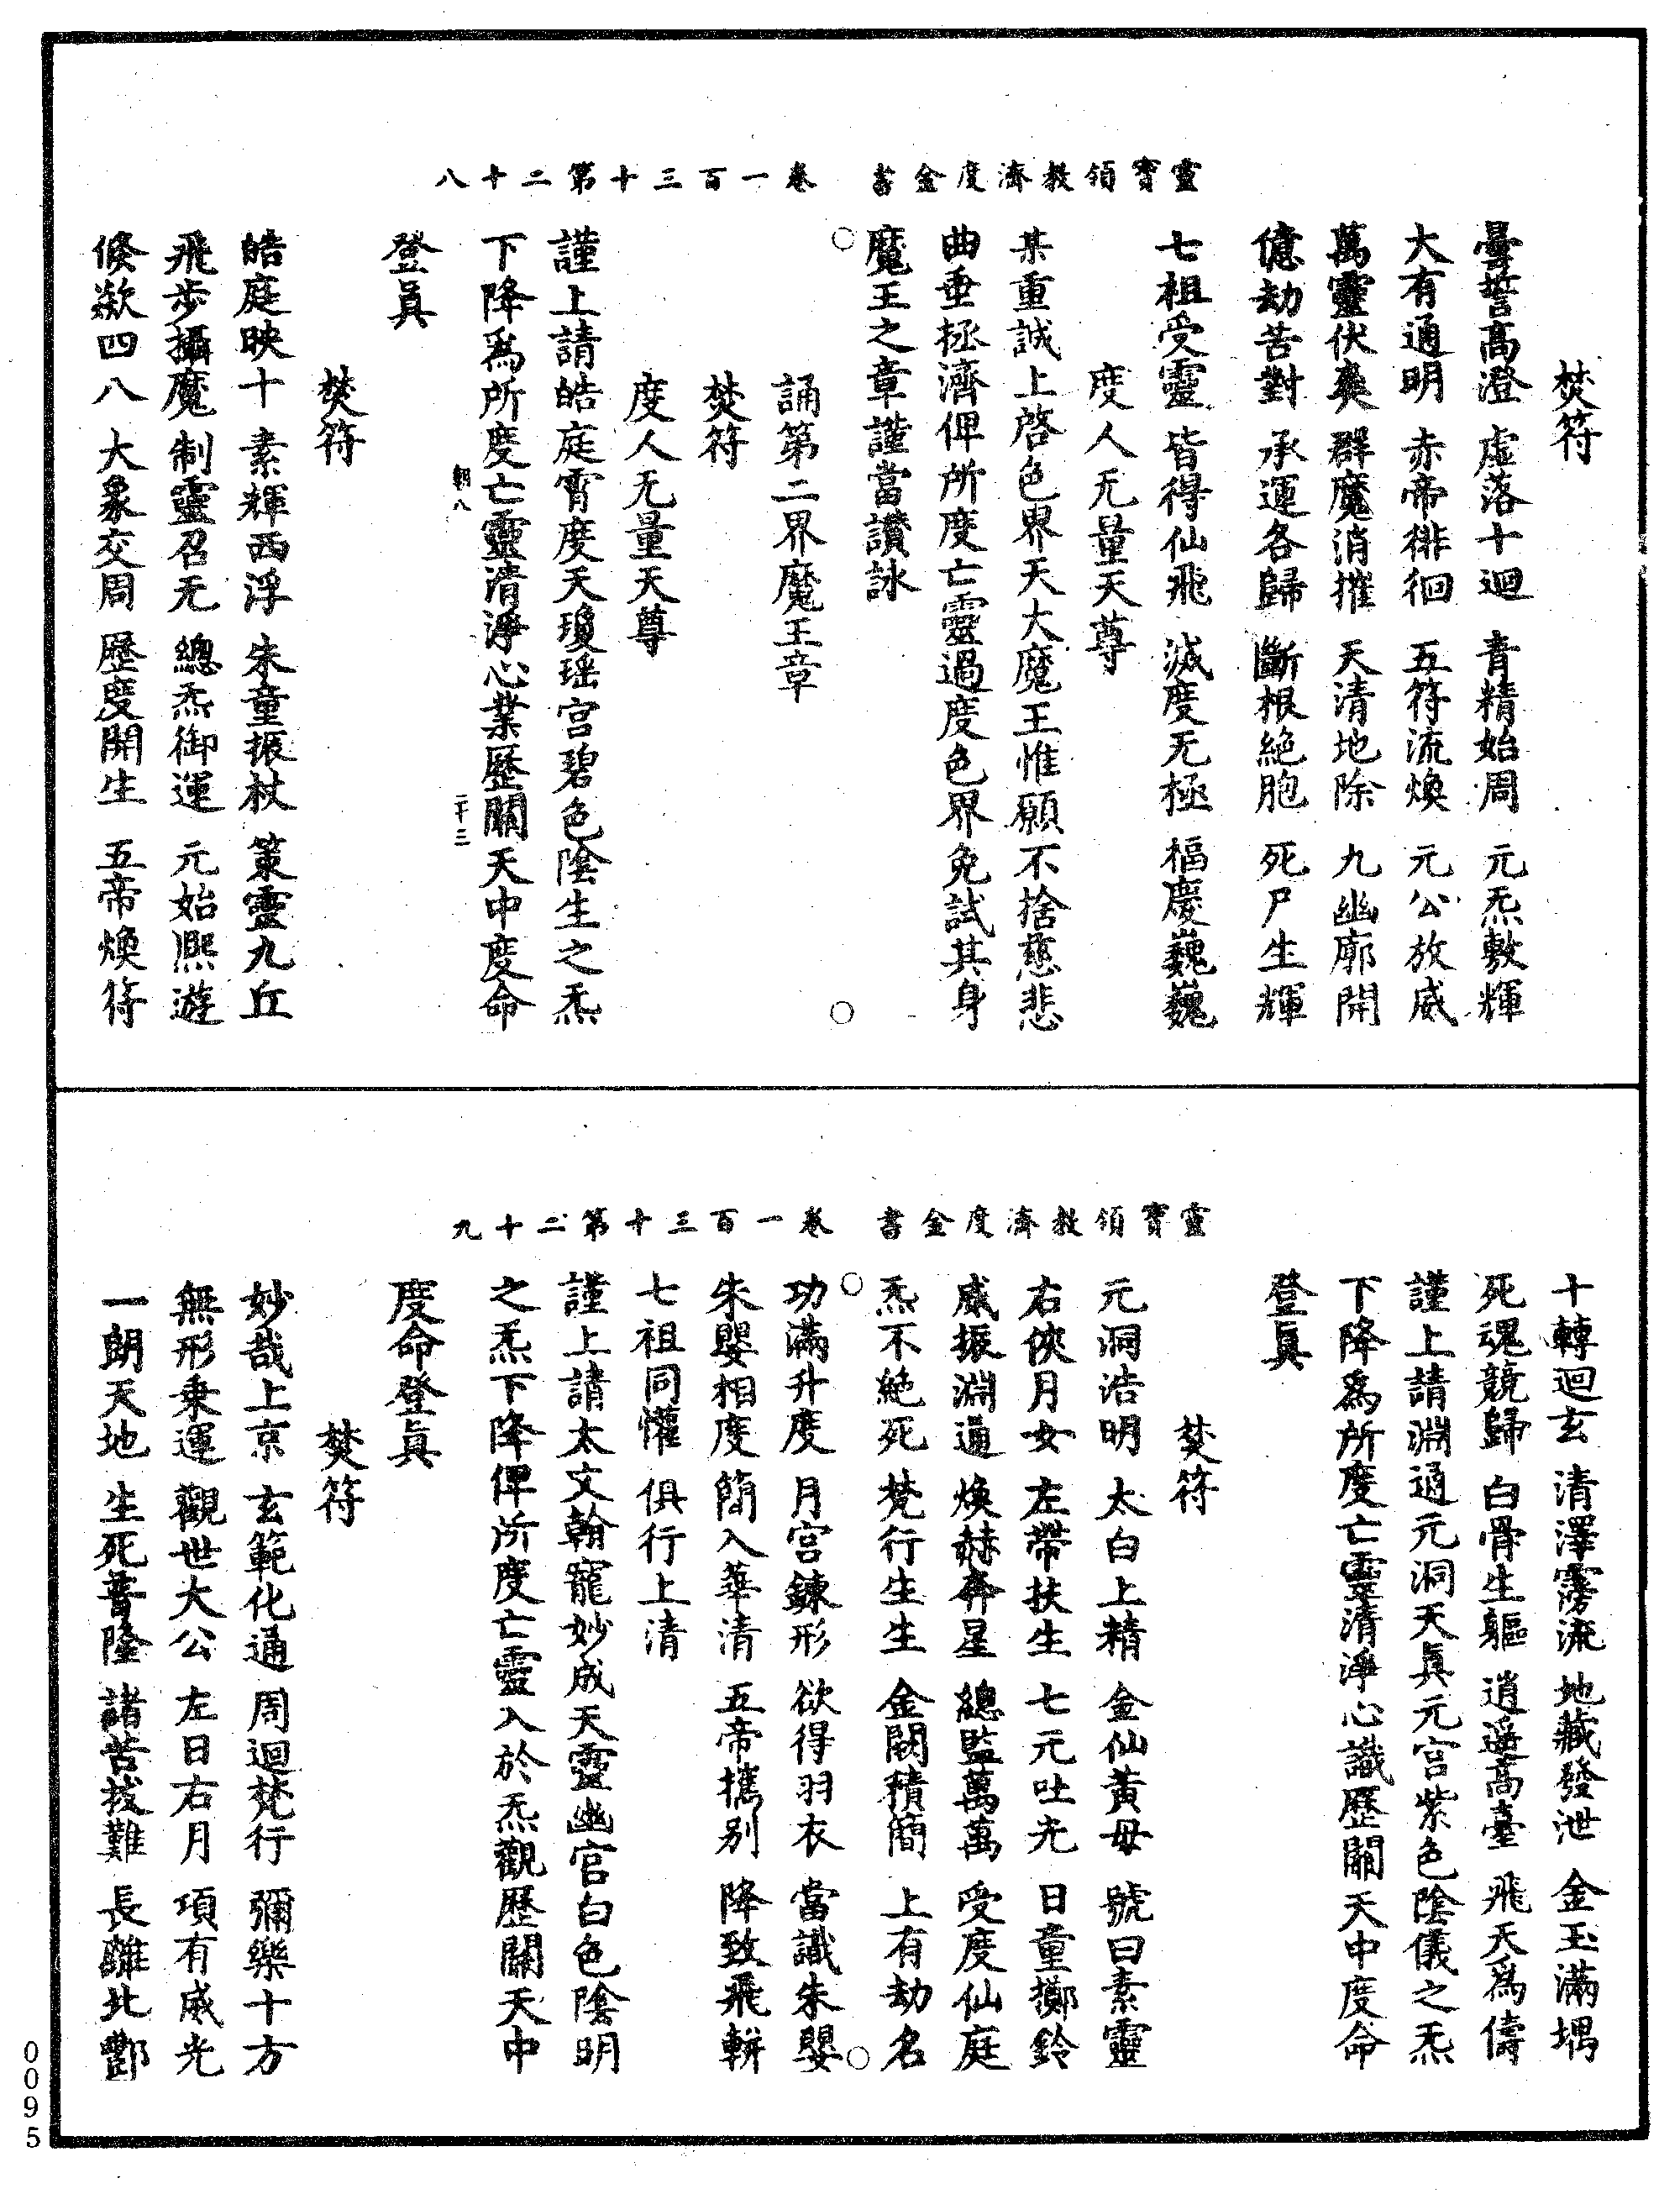 靈寶領教濟度金書　卷一百三十第二十八
焚符
曇誓高澄　虛落十迴　青精始周　元炁敷輝
大有通明　赤帝徘徊　五符流煥　元公放威
萬靈伏奏　群魔消摧　天清地除　九幽廓開
億劫苦對　承運各歸　斷根絕胞　死尸生輝
七祖受靈　皆得仙飛　滅度无極　福慶巍巍
度人无量天尊
某重誠上啓色界天大魔王惟願不捨慈悲
曲垂拯濟俾所度亡靈過度色界免試其身
魔王之章謹當讚詠
誦第二界魔王章
焚符
度人无量天尊
謹上請皓庭霄度天瓊瑤宮碧色陰生之炁
下降爲所度亡靈清淨心業歷關天中度命
朝八　二十三
登眞
焚符
皓庭映十　素輝西浮　朱童振杖　策靈九丘
飛步攝魔　制靈召无　總炁御運　元始熙遊
倏欻四八　大象交周　歷度開生　五帝煥符
靈寶領教濟度金書　卷一百三十第二十九
十轉迴玄　清澤霶流　地藏發泄　金玉滿堣
死魂競歸　白骨生軀　逍遥高臺　飛天爲儔
謹上請淵通元洞天眞元宮紫色陰儀之炁
下降爲所度亡靈清淨心識歷關天中度命
登眞
焚符
元洞浩明　太白上精　金仙黃母　號曰素靈
右俠月女　左帶扶生　七元吐光　日童擲鈴
威振淵通　煥赫奔星　總監萬萬　受度仙庭
炁不絕死　梵行生生　金闕積簡　上有劫名
功滿升度　月宮鍊形　欲得羽衣　當識朱嬰
朱嬰相度　簡入華清　五帝擕別　降致飛軿
七祖同懽　俱行上清
謹上請太文翰寵妙成天靈幽宮白色陰明
之炁下降俾所度亡靈入於炁觀歷關天中
度命登眞
焚符
妙哉上京　玄範化通　周迴梵行　彌樂十方
無形乘運　觀世大公　左日右月　項有威光
一朗天地　生死普隆　諸苦拔難　長離北酆
0095